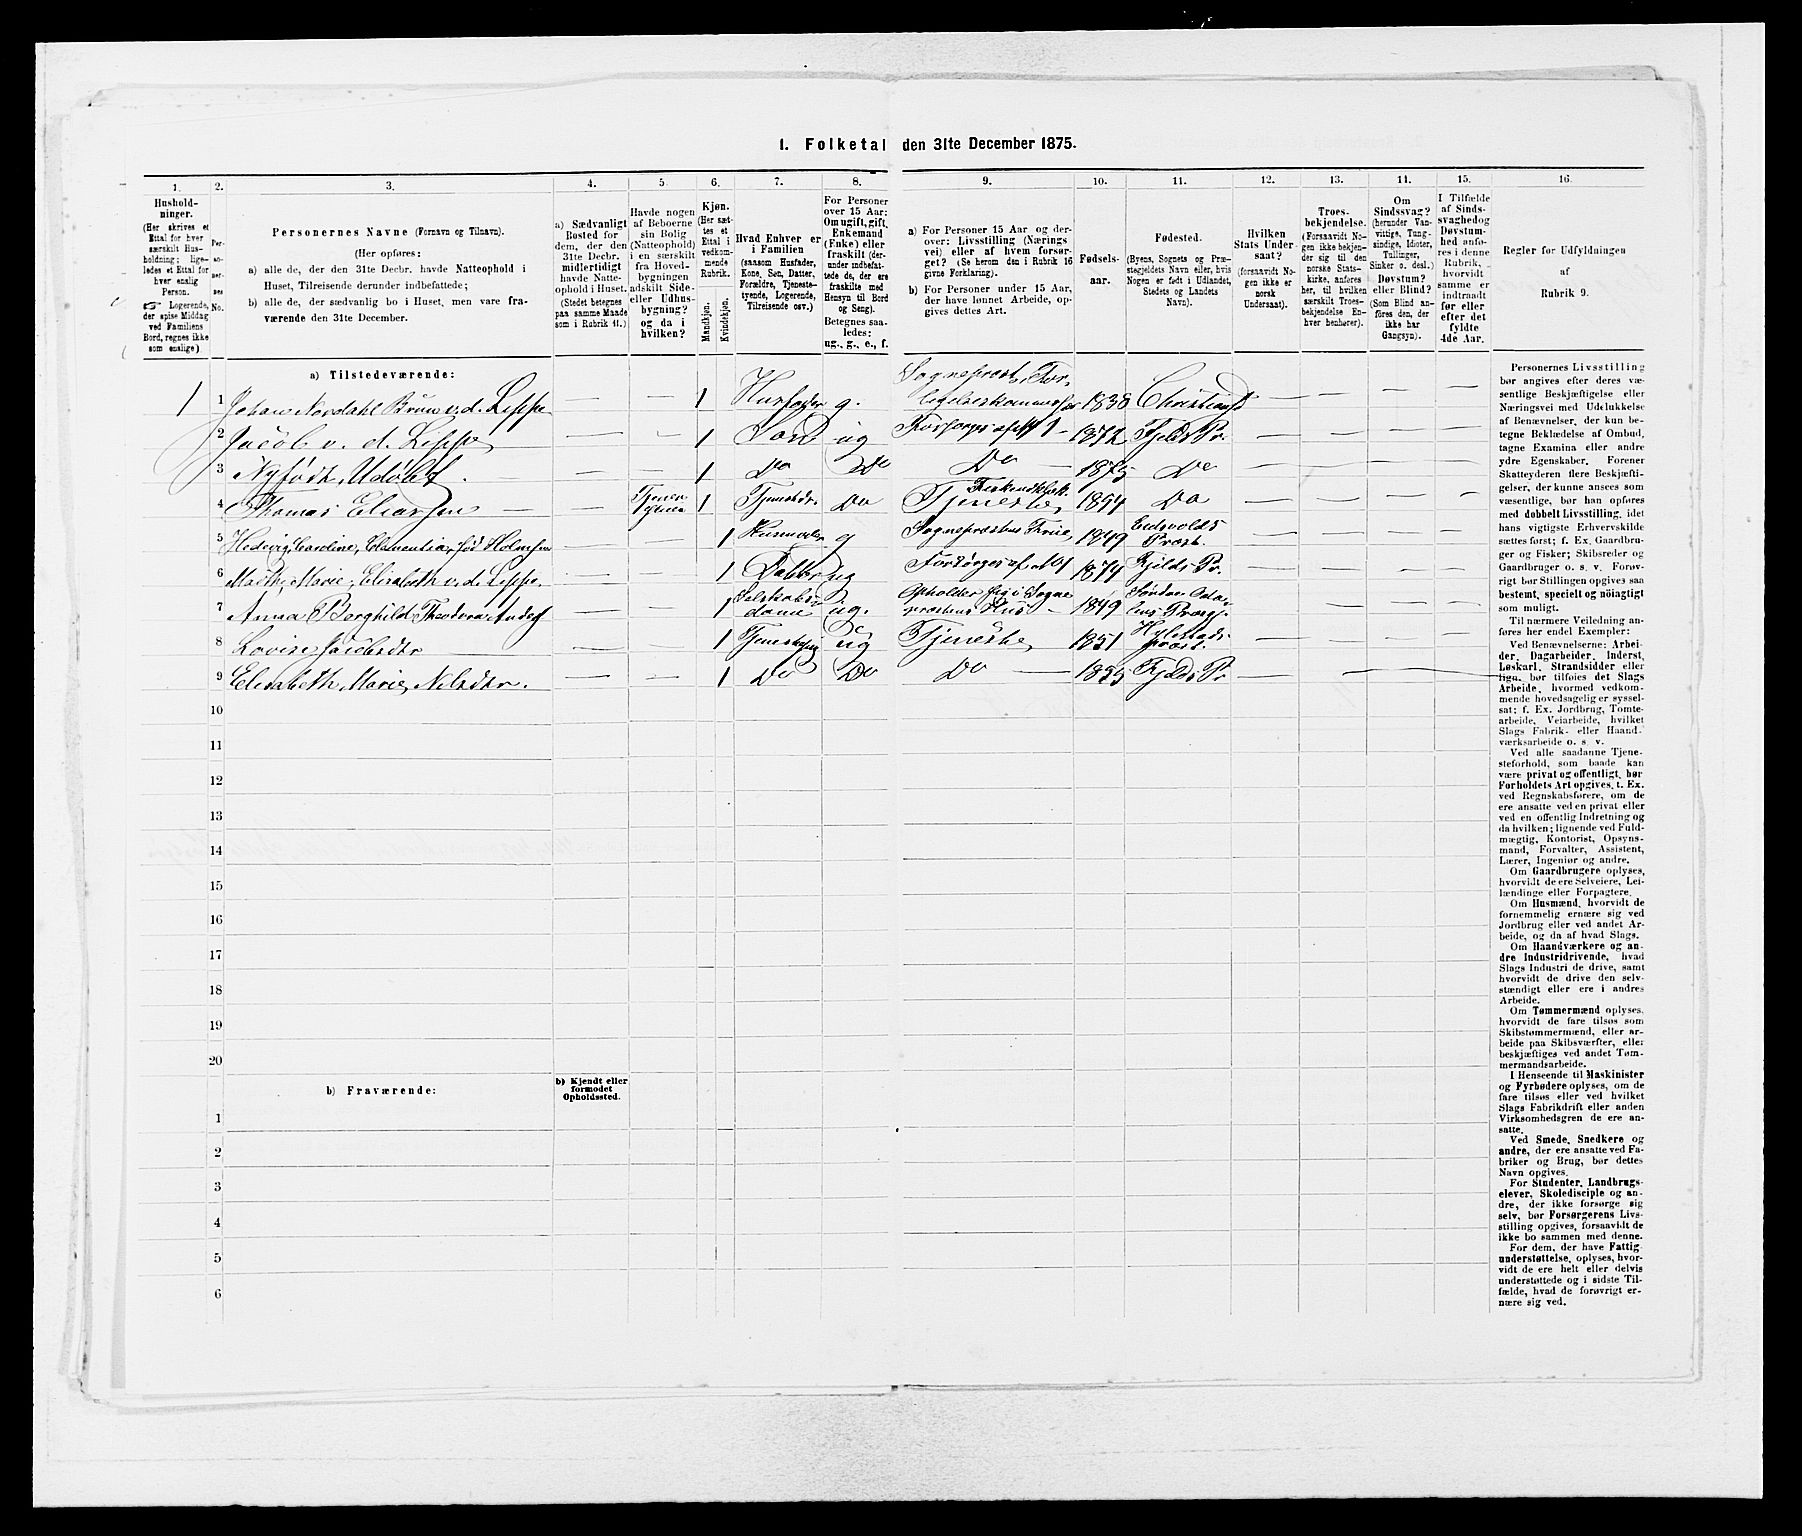 1. Folketal den 31te December 1875.
1. 2. 3. 4. 5. 6. 7. 8. 9. 10. 11. 12. 13. 14. 15. 16.
Hushold-
ninger.
(Her skrives et
Ettal for hver
særskilt Hus-
holdning; lige-
ledes et Ettal for
hver enslig
Person.
Logerende,
der spise Middag
ved Familiens
Bord, regnes ikke
som enslige)
Per-
so-
ner-
nes
No.
Personernes Navne (Fornavn og Tilnavn).
(Her opføres:
a) alle de, der den 31te Decbr. havde Natteophold i
Huset, Tilreisende derunder indbefattede;
b) alle de, der sædvanlig bo i Huset, men vare fra-
værende den 31te December.
a) Sædvanligt
Bosted for
dem, der den
31te Decbr.
midlertidigt
havde Natte-
ophold i Huset.
(Stedet betegnes
paa samme Maade
som i Rubrik 11.)
Havde nogen
af Beboerne
sin Bolig
(Natteophold)
i en særskilt
fra Hoved-
bygningen
adskilt Side-
eller Udhus-
bygning?
og da i
hvilken?
Kjøn.
(Her sæt-
tes et
Ettal i
vedkom-
mende
Rubrik.
Mandkjøn.
Kvindekjøn.
Hvad Enhver er
i Familien
(saasom Husfader,
Kone, Søn, Datter,
Forældre, Tjeneste-
tyende, Logerende,
Tilreisende osv.)
For Personer
over 15 Aar:
Om ugift, gift,
Enkemand
(Enke) eller
fraskilt (der-
under indbefat-
tede de, der ere
fraskilte med
Hensyn til Bord
og Seng).
Betegnes saa-
ledes:
ug., g., e., f.
a) For Personer 15 Aar og der-
over: Livsstilling (Nærings
vei) eller af hvem forsør-
get? (Se herom den i Rubrik 16
givne Forklaring).
b) For Personer under 15 Aar,
der have lønnet Arbeide, op-
gives dettes Art.
Fødsels-
aar.
Fødested.
(Byens, Sognets og Præ-
stegjeldets Navn eller, hvis
Nogen er født i Udlandet,
Stedets og Landets
Navn).
Hvilken
Stats Under-
saat?
(forsaavidt No-
gen ikke er
norsk
Undersaat).
Troes-
bekjendelse.
(Forsaavidt No-
gen ikke bekjen-
der sig til den
norske Stats-
kirke, anføres
her, til hvilken
særskilt Troes-
bekjendelse En-
hver henhører).
Om
Sindssvag?
(herunder Van-
vittige, Tung-
sindige, Idioter,
Tullinger,
Sinker o. desl.)
Døvstum?
eller Blind?
(Som Blind an-
føres den, der
ikke har
Gangsyn).
I Tilfælde
af Sinds-
svaghed og
Døvstum-
hed anfø-
res i denne
Rubrik,
hvorvidt
samme er
indtraadt
før eller
efter det
fyldte
4de Aar.
Regler før Udfyldningen
af
Rubrik 9.
a) Tilstedeværende:
1 1 Johan Nordahl Brun v. d. Lippe — — 1 Husfader g. Sogneprest, For- ligelseskommissær 1838 Christians — —
2 Jacob v. d. Lippe — — 1 Søn ug 1872 Fjelds Pr. — — — —
3 Nyfødt, Udøbt. — — 1 Do Do Do 1875 Do — — — —
4 Thomas Eliassen — — 1 Do Tjeneste 1854 Do — — — —
5 Hedevig, Caroline, Clementia, fød — — 1 Husmoder g Sogneprestens Frue, 1849 Eidsvolds Præst. — — — —
6 Marie, Elisabeth v. d. Lippe. — — 1 Datter ug Forsørges af No 1 1874 Fjelds Pr. — — — —
7 Anna Berghild Theodora — — 1 Selskabs- dame ug. Opholder sig i Sogne- prestens Hus 1849 — — — —
8 Lovise — — 1 ug Tjeneste 1851 — — — —
9 Elisabeth, Marie, Nilsdtr. — — 1 Do Do Do 1855 Fjelds Pr — — — —
10
11
12
13
14
15
16
17
18
19
20
b) Fraværende:
b) Kjendt eller
formodet
Opholdssted.
1
2
3
4
5
6
Personernes Livsstilling
bør angives efter deres væ-
sentlige Beskjæftigelse eller
Næringsvei med Udelukkelse
af Benævnelser, der kun be-
tegne Beklædelse af Ombud,
tagne Examina eller andre
ydre Egenskaber. Forener
Skatteyderen flere Beskjæfti-
gelser, der kunne ansees som
væsentlige, bør han opføres
med dobbelt Livsstilling, idet
hans vigtigste Erhvervskilde
sættes først; f. Ex. Gaardbru-
ger og Fisker; Skibsreder og
Gaardbruger o. s. v. Forøv-
rigt bør Stillingen opgives saa
bestemt, specielt og nöiagtigt
som muligt.
Til nærmere Veiledning an-
føres her endel Exempler:
Ved Benævnelserne: Arbei-
der, Dagarbeider, Inderst,
Løskarl, Strandsidder eller
lign. bør tilføies det Slags
Arbeide, hvormed vedkom-
mende hovedsagelig er syssel-
sat; f. Ex. Jordbrug, Tomte-
arbeide, Veiarbeide, hvilket
Slags Fabrik- eller Haand-
værksarbeide o. s. v.
Ved alle saadanne Tjene-
steforhold, som baade kan
være privat og offentligt, bør
Forholdets Art opgives, t. Ex.
ved Regnskabsførere, om de
ere ansatte ved en privat eller
ved en offentlig Indretning og
da hvilken; lignende ved Fuld-
mægtig, Kontorist, Opsyns-
mand, Forvalter, Assistent,
Lærer, Ingeniør og andre.
Om Gaardbrugere oplyses,
hvorvidt de ere Selveiere, Lei-
lændinge eller Forpagtere.
Om Husmænd, hvorvidt de
fornemmelig ernære sig ved
Jordbrug eller ved andet Ar-
beide, og da af hvad Slags.
Om Haandværkere og an-
dre Industridrivende, hvad
Slags Industri de drive, samt
hvorvidt de drive den selv-
stændigt eller ere i andres
Arbeide.
Om Tømmermænd oplyses,
hvorvidt de fare tilsøs som
Skibstømmermænd, eller ar-
beide paa Skibsværfter, eller
beskjæftiges ved andet Tøm-
mermandsarbeide.
I Henseende til Maskinister
og Fyrbødere oplyses, om de
fare tilsøs eller ved hvilket
Slags Fabrikdrift eller anden
Virksomhedsgren de ere an-
satte.
Ved Smede, Snedkere og
andre, der ere ansatte ved Fa-
briker og Brug, bør dettes
Navn opgives.
For Studenter, Landbrugs-
elever, Skoledisciple og an-
dre, der ikke forsørge sig
selv, bør Forsørgerens Livs-
stilling opgives, forsaavidt de
ikke bo sammen med denne.
For dem, der have Fattig
understøttelse, oplyses, hvor-
vidt de ere helt eller delvis
understøttede og i sidste Til-
fælde, hvad de forøvrigt er-
nære sig ved.